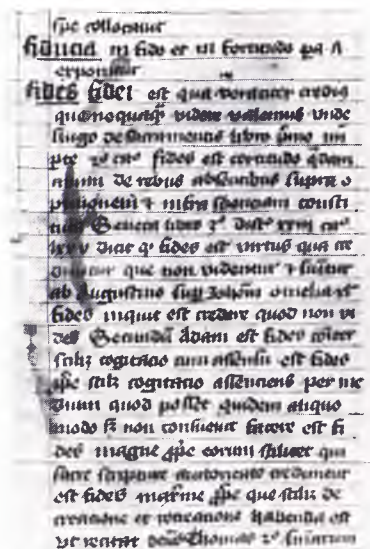 spe collocatur
fiducia in fido et in confido pa A
exponitur
fides fidei est qua veraciter credim
que nequaqȝ videre valemus unde
hugo de sacramentis libro primo
pte fides est certitudo qdam
animi de rebus absentibus supra o
pinionem ⁊ infra scientiam consti
tuta Sentent libro 3° dist° xxiij ca°
dicit qȝ fides est virtus qua cre
duntur que non videntur ⁊ sumitur
ab augustino sup Johem
fides inquit est credere quod non vi
des Secundū Adam est fides
scilȝ cogitatio cum assensu est fides
spe scilȝ cogitatio assenciens per me
dium quod posset quidem aliquo
modo sȝ non consuevit facere est fi
des magne spe eorum scilicet qui
sacre scripture auctoritate credentur
est fides maxime spe que scilȝ de
creatione et recreatione habenda est
ut recitat Thomas